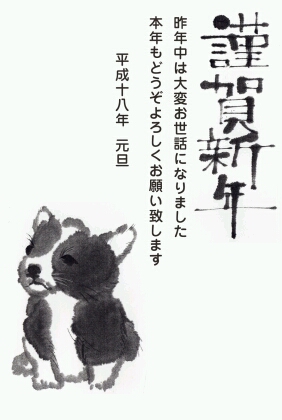 謹賀新年
昨年中は大変お世話になりました
本年もどうぞよろしくお願い致します
平成十八年 元旦